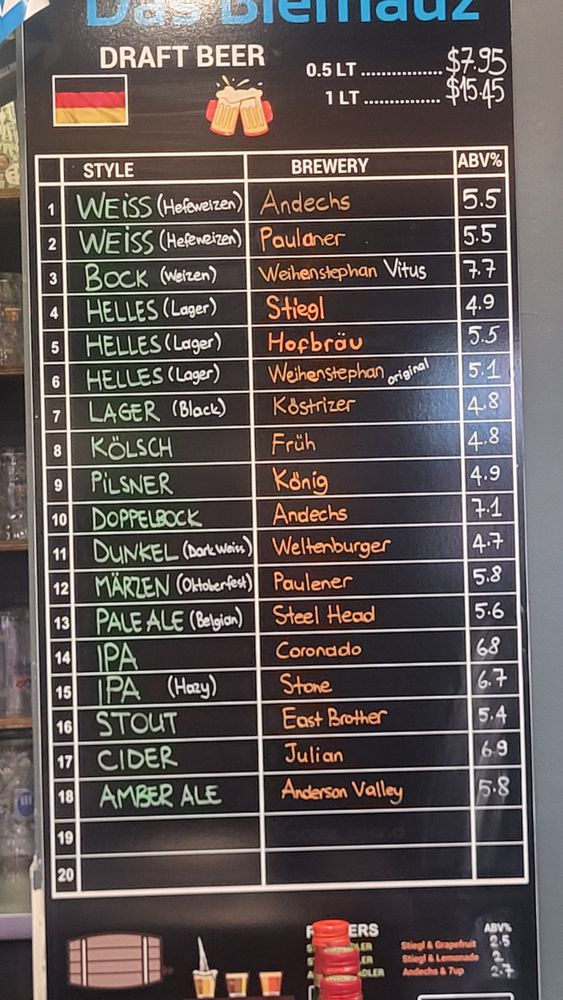 Das Bierhauz
DRAFT BEER
0.5 LT ................ $7.95
1 LT ............... $15.45
STYLE BREWERY ABV%
1 WEISS (Hefeweizen) Andechs 5.5
2 WEISS (Hefeweizen) Paulaner 5.5
3 BOCK (Weizen) Weihenstephan Vitus 7.7
4 HELLES (Lager) Stiegl 4.9
5 HELLES (Lager) Hofbräu 5.5
6 HELLES (Lager) Weihenstephan original 5.1
7 LAGER (Black) Köstrizer 4.8
8 KÖLSCH Früh 4.8
9 PILSNER König 4.9
10 DOPPELBOCK Andechs 7.1
11 DUNKEL (Dark Weiss) Weltenburger 4.7
12 MÄRZEN (Oktoberfest) Paulener 5.8
13 PALE ALE (Belgian) Steel Head 5.6
14 IPA Coronado 68
15 IPA (Hazy) Stone 6.7
16 STOUT East Brother 5.4
17 CIDER Julian 6.9
18 AMBER ALE Anderson Valley 5.8
19
20
ABV%
Stiegl & Grapefruit 2.5
Stiegl & Lemonade 2
Andechs & 7up 2.7